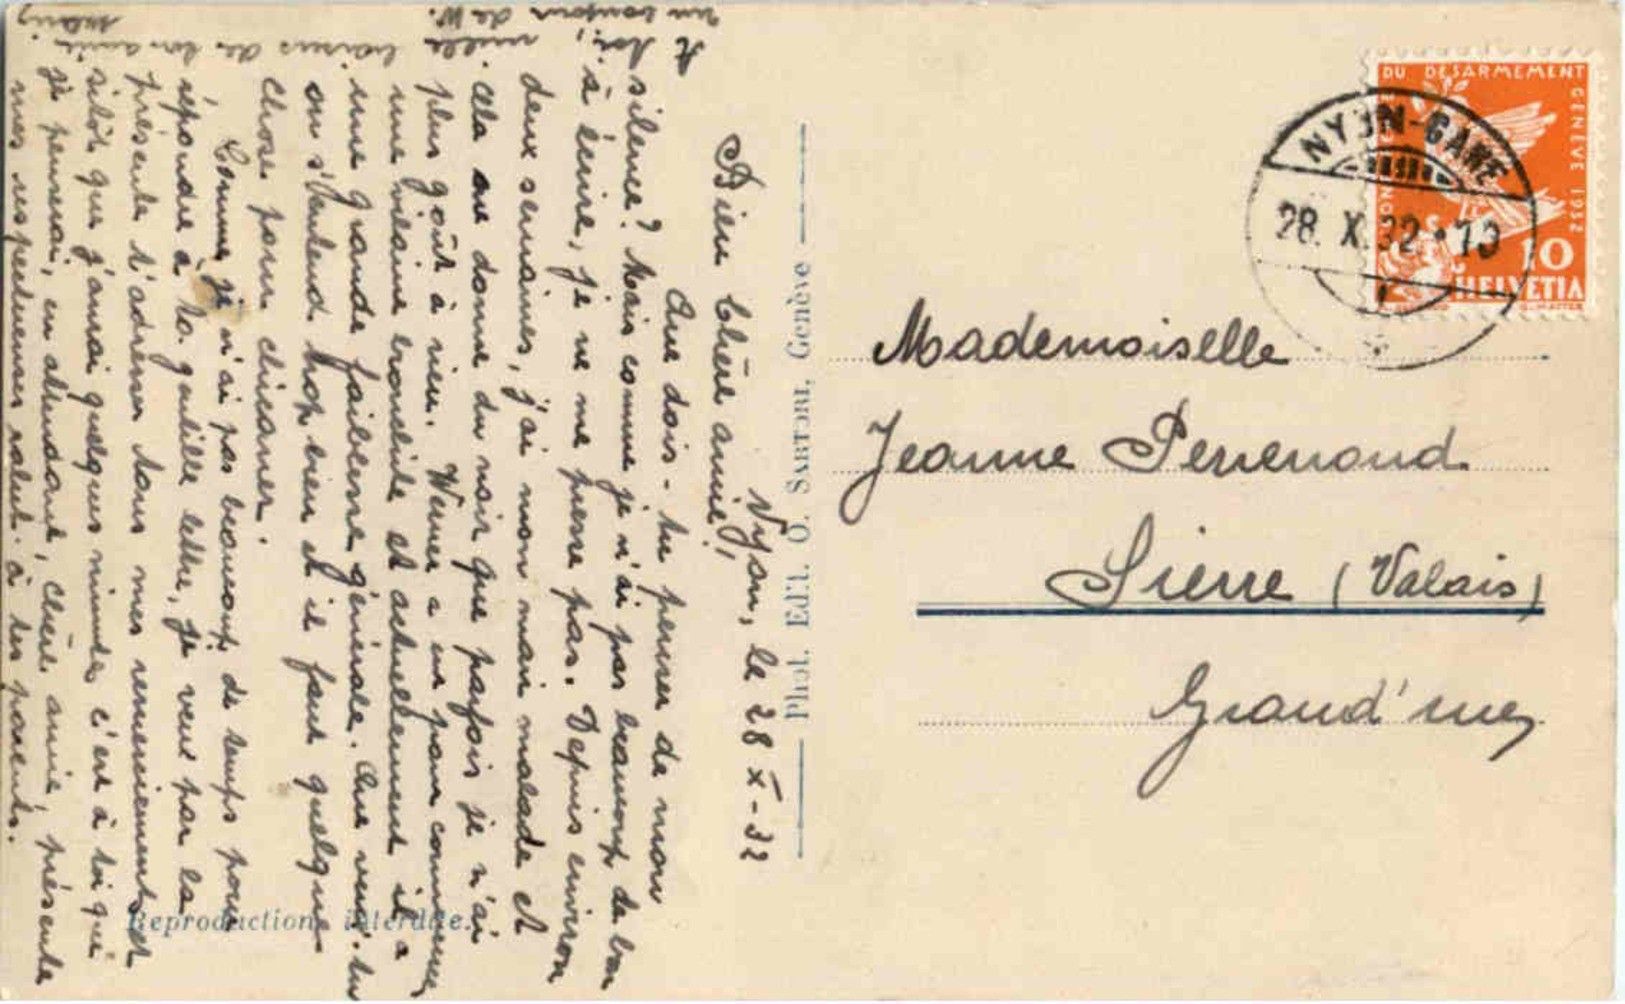 Nyon, le 28 X - 32
Bien Chère amie!
Que dois-tu penser de mon
silence? Mais comme je n'ai pas beaucoup de bon
à écrire, je ne me presse pas. Depuis environ
deux semaines, j'ai mon main malade et
cela me donne du noir que parfois je n'ai
plus goût à rien. Werner a eu pour commencer
une vilaine bronchite et actuellement il a
une grande faiblesse générale. Que veux-tu
on s'entend trop bien et il faut quelque
chose pour chicaner.
Comme je n'ai pas beaucoup de temps pour
répondre à ta gentille lettre, je veux par la
présente t'adresser tous mes remerciements et
sitôt que j'aurai quelques minutes c'est à toi que
je penserai, en attendant, Chère amie, présente
mes respectueuses salut. à tes parents.
A toi, mille baisers de ton amie
un bonjour de W.
Phot. Edit. O. SARTORI, Genève
Reproduction interdite.
DU DESARMEMENT
GENEVE 1932
10
HELVETIA
NYON-GARE
28. X. 32 · 10
Mademoiselle
Jeanne Perrenoud
Sierre (Valais)
Grand'rue